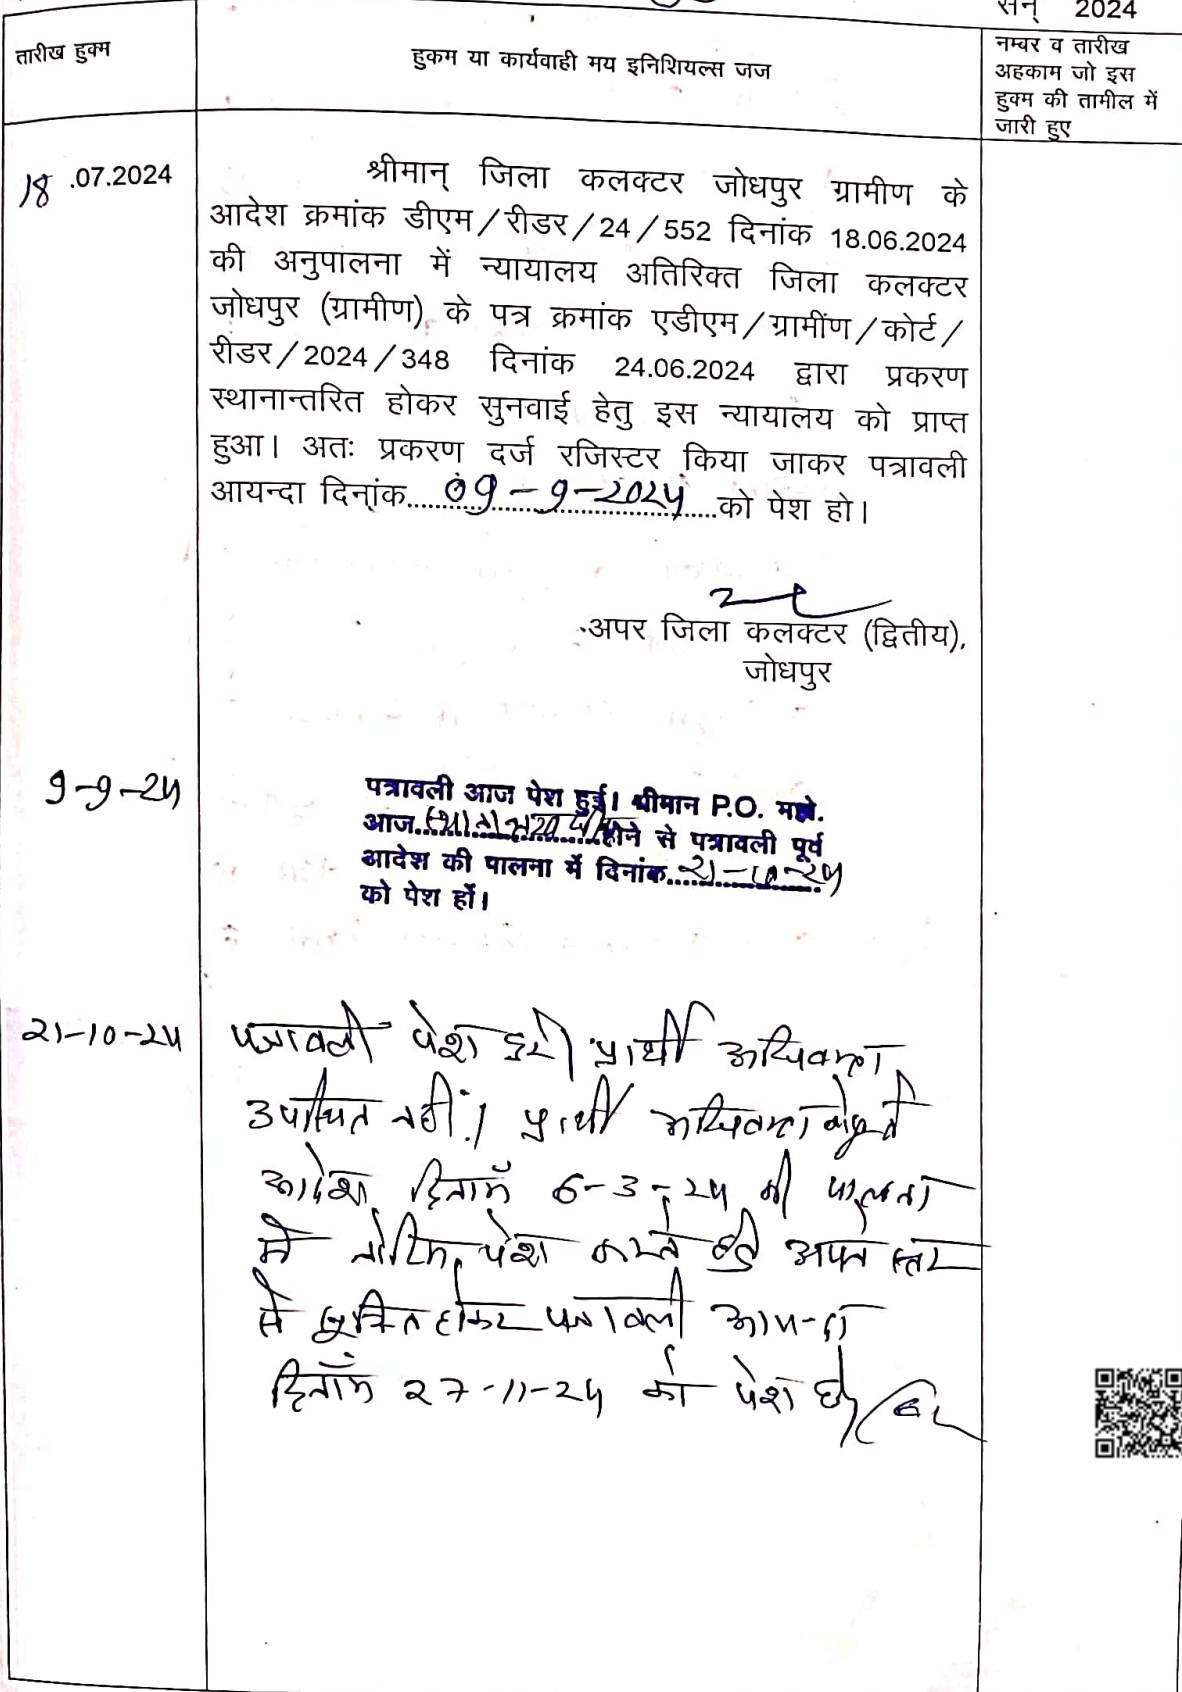 सन् 2024
तारीख हुक्म
हुकम या कार्यवाही मय इनिशियल्स जज
नम्बर व तारीख
अहकाम जो इस
हुक्म की तामील में
जारी हुए
18.07.2024
श्रीमान् जिला कलक्टर जोधपुर ग्रामीण के
आदेश क्रमांक डीएम/रीडर/24/552 दिनांक 18.06.2024
की अनुपालना में न्यायालय अतिरिक्त जिला कलक्टर
जोधपुर (ग्रामीण) के पत्र क्रमांक एडीएम/ग्रामींण/कोर्ट/
रीडर/2024/348 दिनांक 24.06.2024 द्वारा प्रकरण
स्थानान्तरित होकर सुनवाई हेतु इस न्यायालय को प्राप्त
हुआ। अतः प्रकरण दर्ज रजिस्टर किया जाकर पत्रावली
आयन्दा दिनांक....09-9-2024....को पेश हो।
अपर जिला कलक्टर (द्वितीय),
जोधपुर
9-9-24
पत्रावली आज पेश हुई। श्रीमान P.O. महो.
आज....होने से पत्रावली पूर्व
आदेश की पालना में दिनांक....21-10-24
को पेश हों।
21-10-24
पत्रावली पेश हुई। प्रार्थी अधिवक्ता
उपस्थित नहीं। प्रार्थी अधिवक्ता
आदेश दिनांक 6-3-24 की पालना
में नोटिस पेश करते हुये अपने स्तर
से सूचित होकर पत्रावली आयन्दा
दिनांक 27-11-24 को पेश हो।